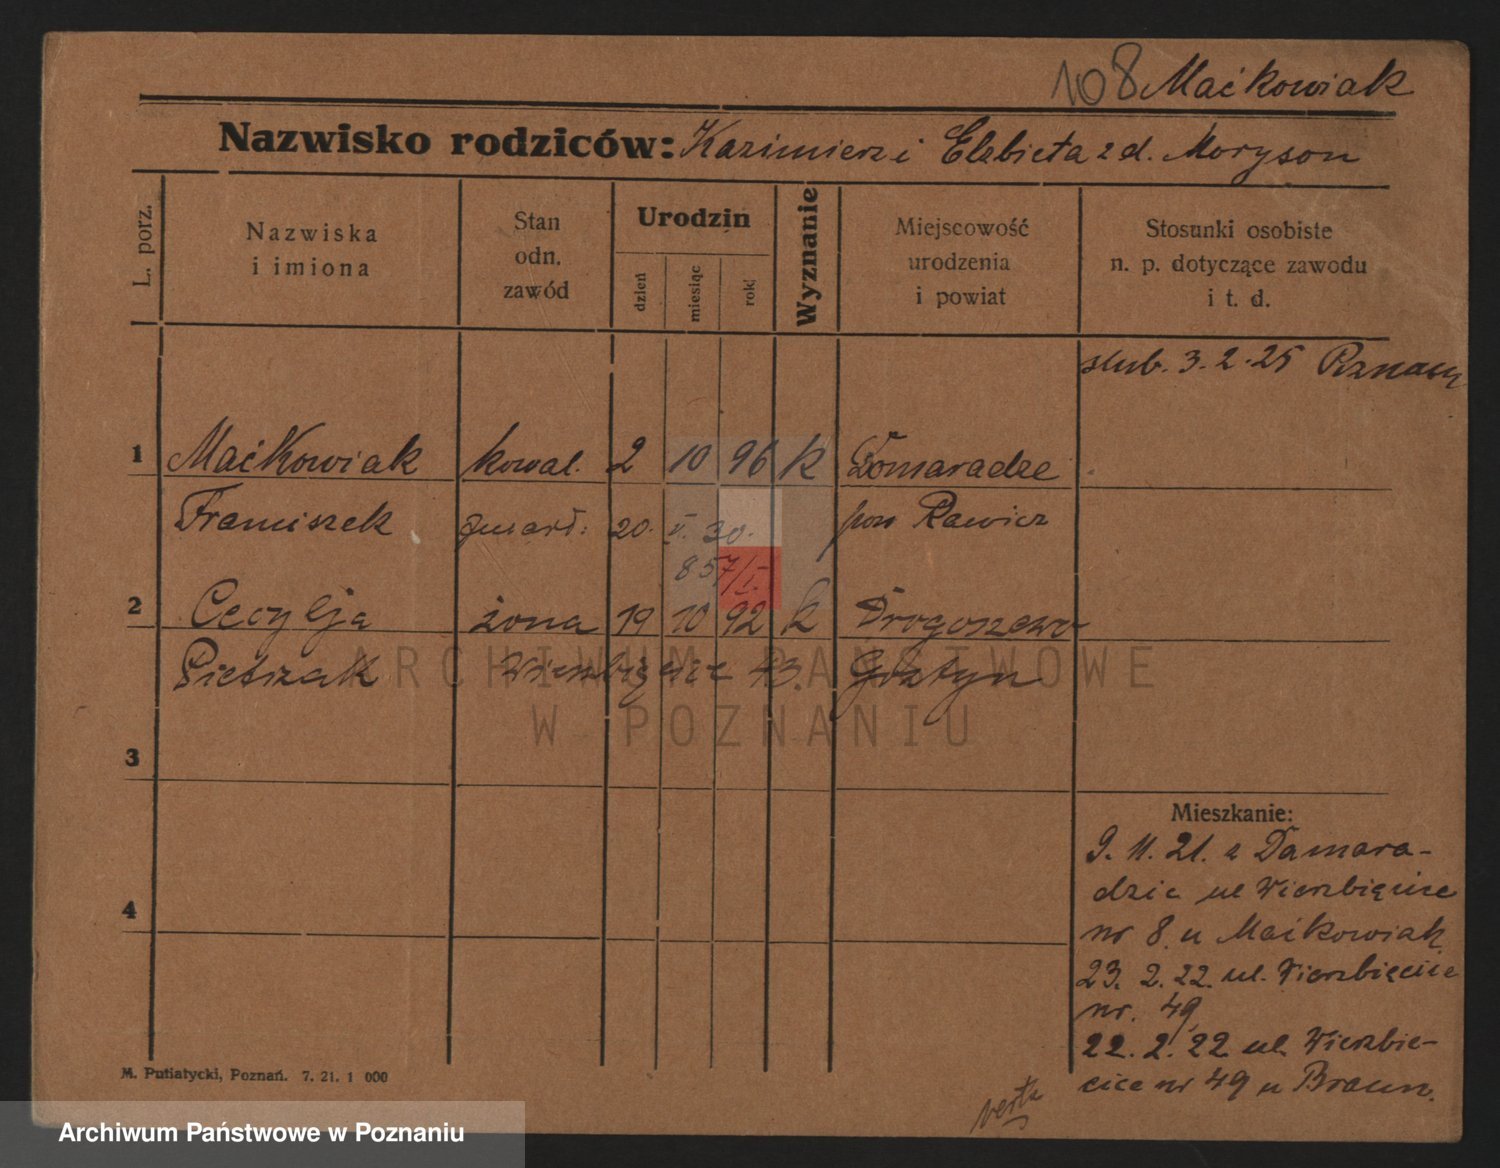 108 Maćkowiak
Nazwisko rodziców: Kazimierz i Elzbieta z d. Moryson
L. porz.
Nazwiska
i imiona
Stan
odn.
zawód
Urodzin
dzień
miesiąc
rok
Wyznanie
Miejscowość
urodzenia
i powiat
Stosunki osobiste
n. p. dotyczące zawodu
i t. d.
slub. 3. 2. 25 Poznań
1 Maćkowiak kowal. 2 10 96 k Domaradze
Franciszek 20. V. 30. pow Rawicz
857/I.
2 Cecylja żona 19 10 92 k Drogoszewo
Pietrzak Wierzbięcice 43. Gostyn
3
4
Mieszkanie:
9. 11. 21. z Damara-
dzic ul Wierzbięcice
nr 8. u Maćkowiak
23. 2. 22. ul. Wierzbięcice
nr. 49
22. 2. 22 ul. Wierzbie-
cice nr 49 u Braun.
verte
M. Putiatycki, Poznań. 7. 21. 1 000
ARCHIWUM PAŃSTWOWE
W POZNANIU
Archiwum Państwowe w Poznaniu